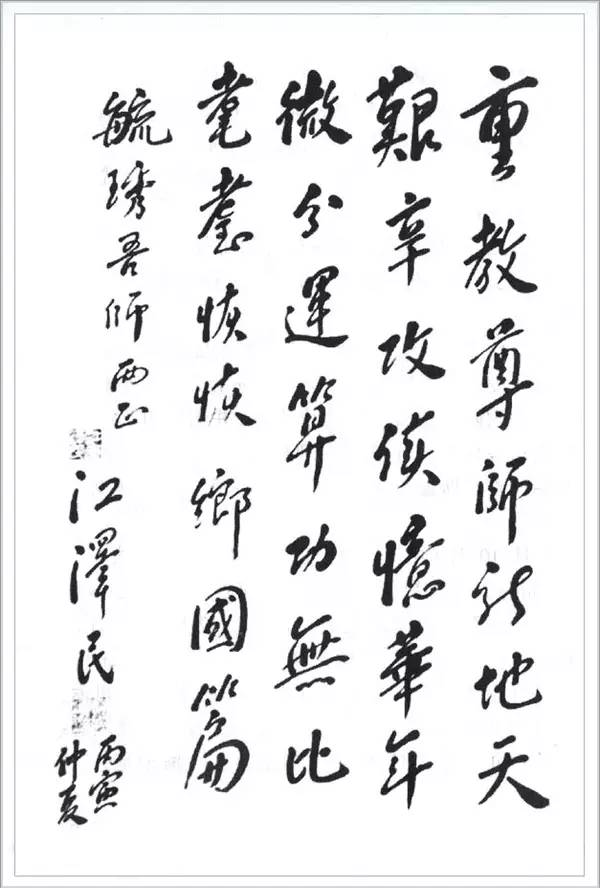 重教尊師新地天
艱辛攻讀憶華年
微分運算功無比
耄耋恢恢鄉國篇
毓琇吾師 正
江澤民
丙寅
仲夏